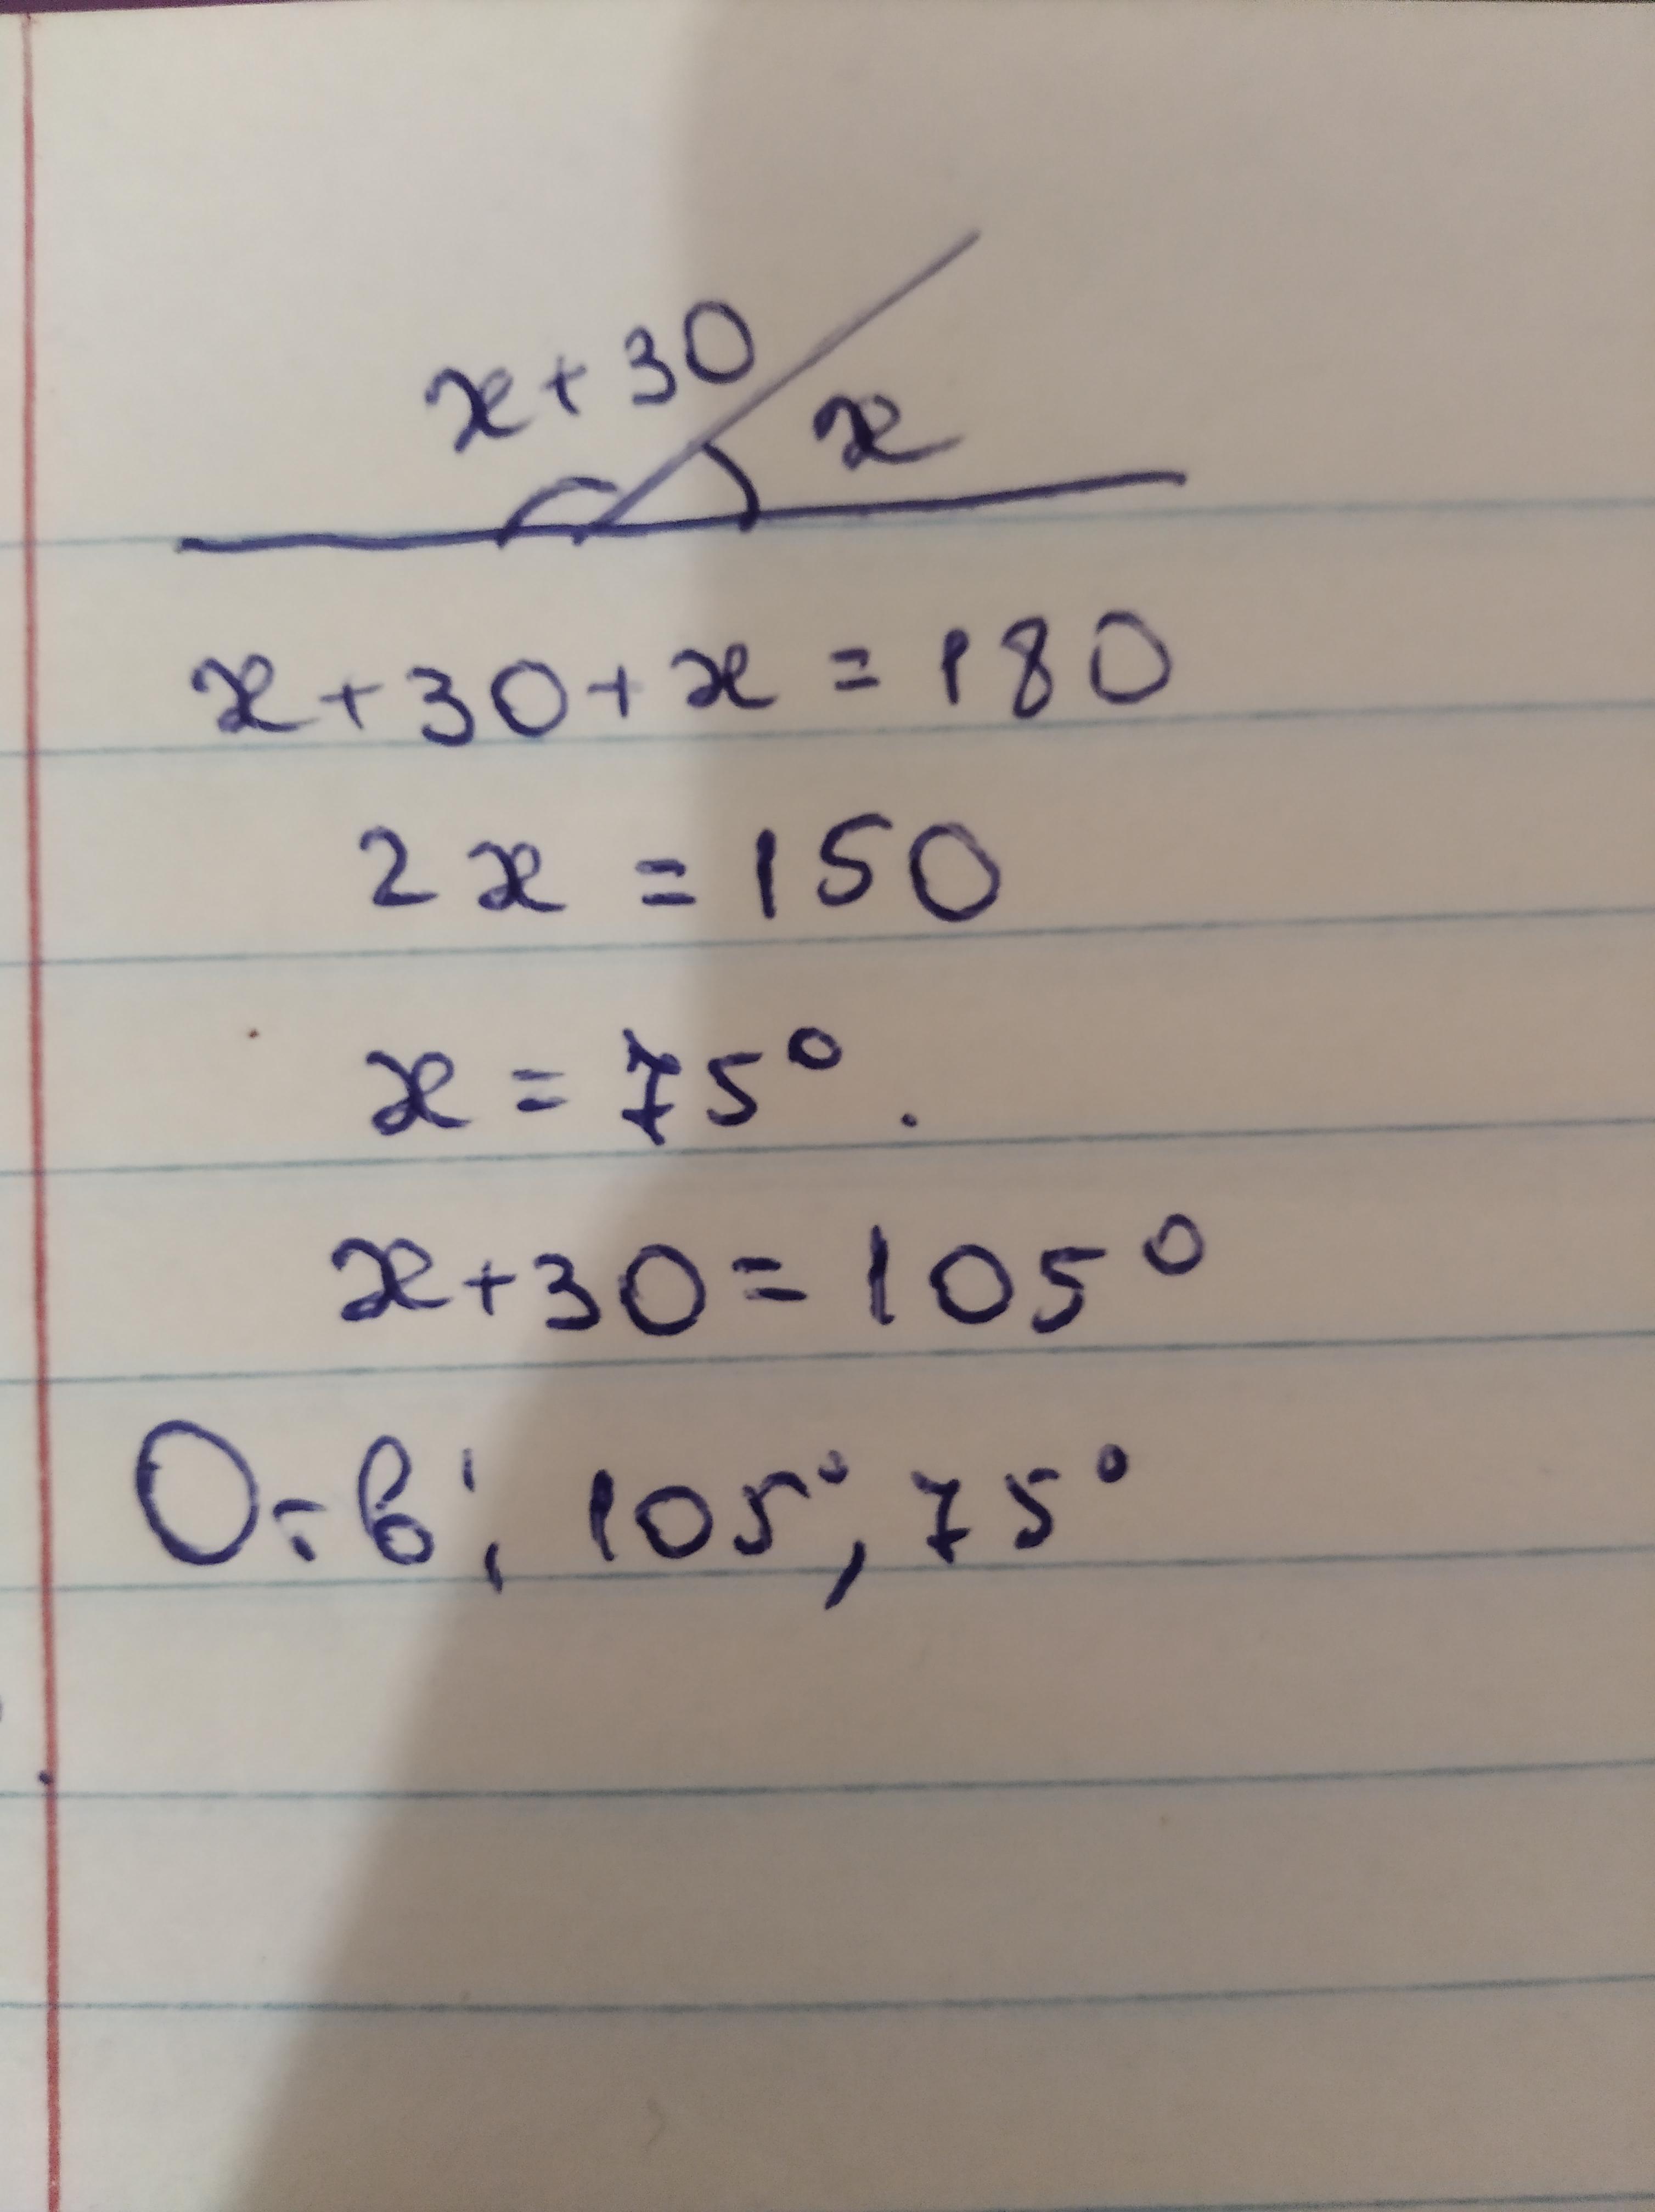 x+30
x
x+30+x=180
2x=150
x=75°.
x+30=105°
О-в: 105°, 75°